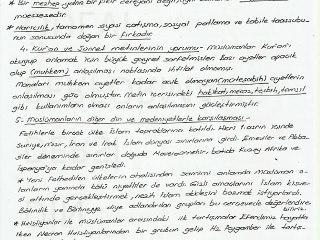 * Bir mezhep yahut bir fikir cereyanı değil
müessesedir.
* Haricilik, tamamen siyasi çatışma, sosyal patlama ve kabile taassubu-
nun sonucunda doğan bir fırkadır.
4. Kur'an ve Sünnet metinlerinin yorumu- Müslümanlar Kur'an'ı
okuyup anlamak için büyük gayret sarfetmişler bazı ayetler apaçık
olup (muhkem) anlaşılması noktasında ihtilaf olmamış.
Manaları muhkem ayetler kadar açık olmayan (müteşabih) ayetlerin
anlaşılması güç olmuştur. Metin içerisindeki hakikat, mecaz, teşbih, temsil
gibi kullanımların olması onların anlaşılmasını güçleştirmiştir.
5- Müslümanların diğer din ve medeniyetlerle karşılaşması-
Fetihlerle birçok ülke İslam topraklarına katıldı. Hz
Suriye, Mısır, İran ve Irak İslam dünyası sınırlarına girdi. Emeviler ve Abba-
siler döneminde sınırlar doğuda Maveraünnehir, batıda Kuzey Afrika ve
İspanya'ya kadar genişledi.
* Yeni fethedilen ülkelerin ahalisinden samimi anlamda Müslüman o-
lanların yanında kötü niyetliler de vardı. Gizli amaçlarını İslam kisve-
si altında gerçekleştirmek, nesih İslam akidesini bozmak istiyorlardı.
Bâtınilik ve Bâtıniyye diye adlandırılan grupları bu çerçevede değerlendire-
biliriz.
* Hristiyanlar ile müslümanlar arasındaki ilk tartışmalar Efendimiz hayatta
iken Necran Hristiyanlarından bir grubun gelip Hz. Peygamber ile tartış-